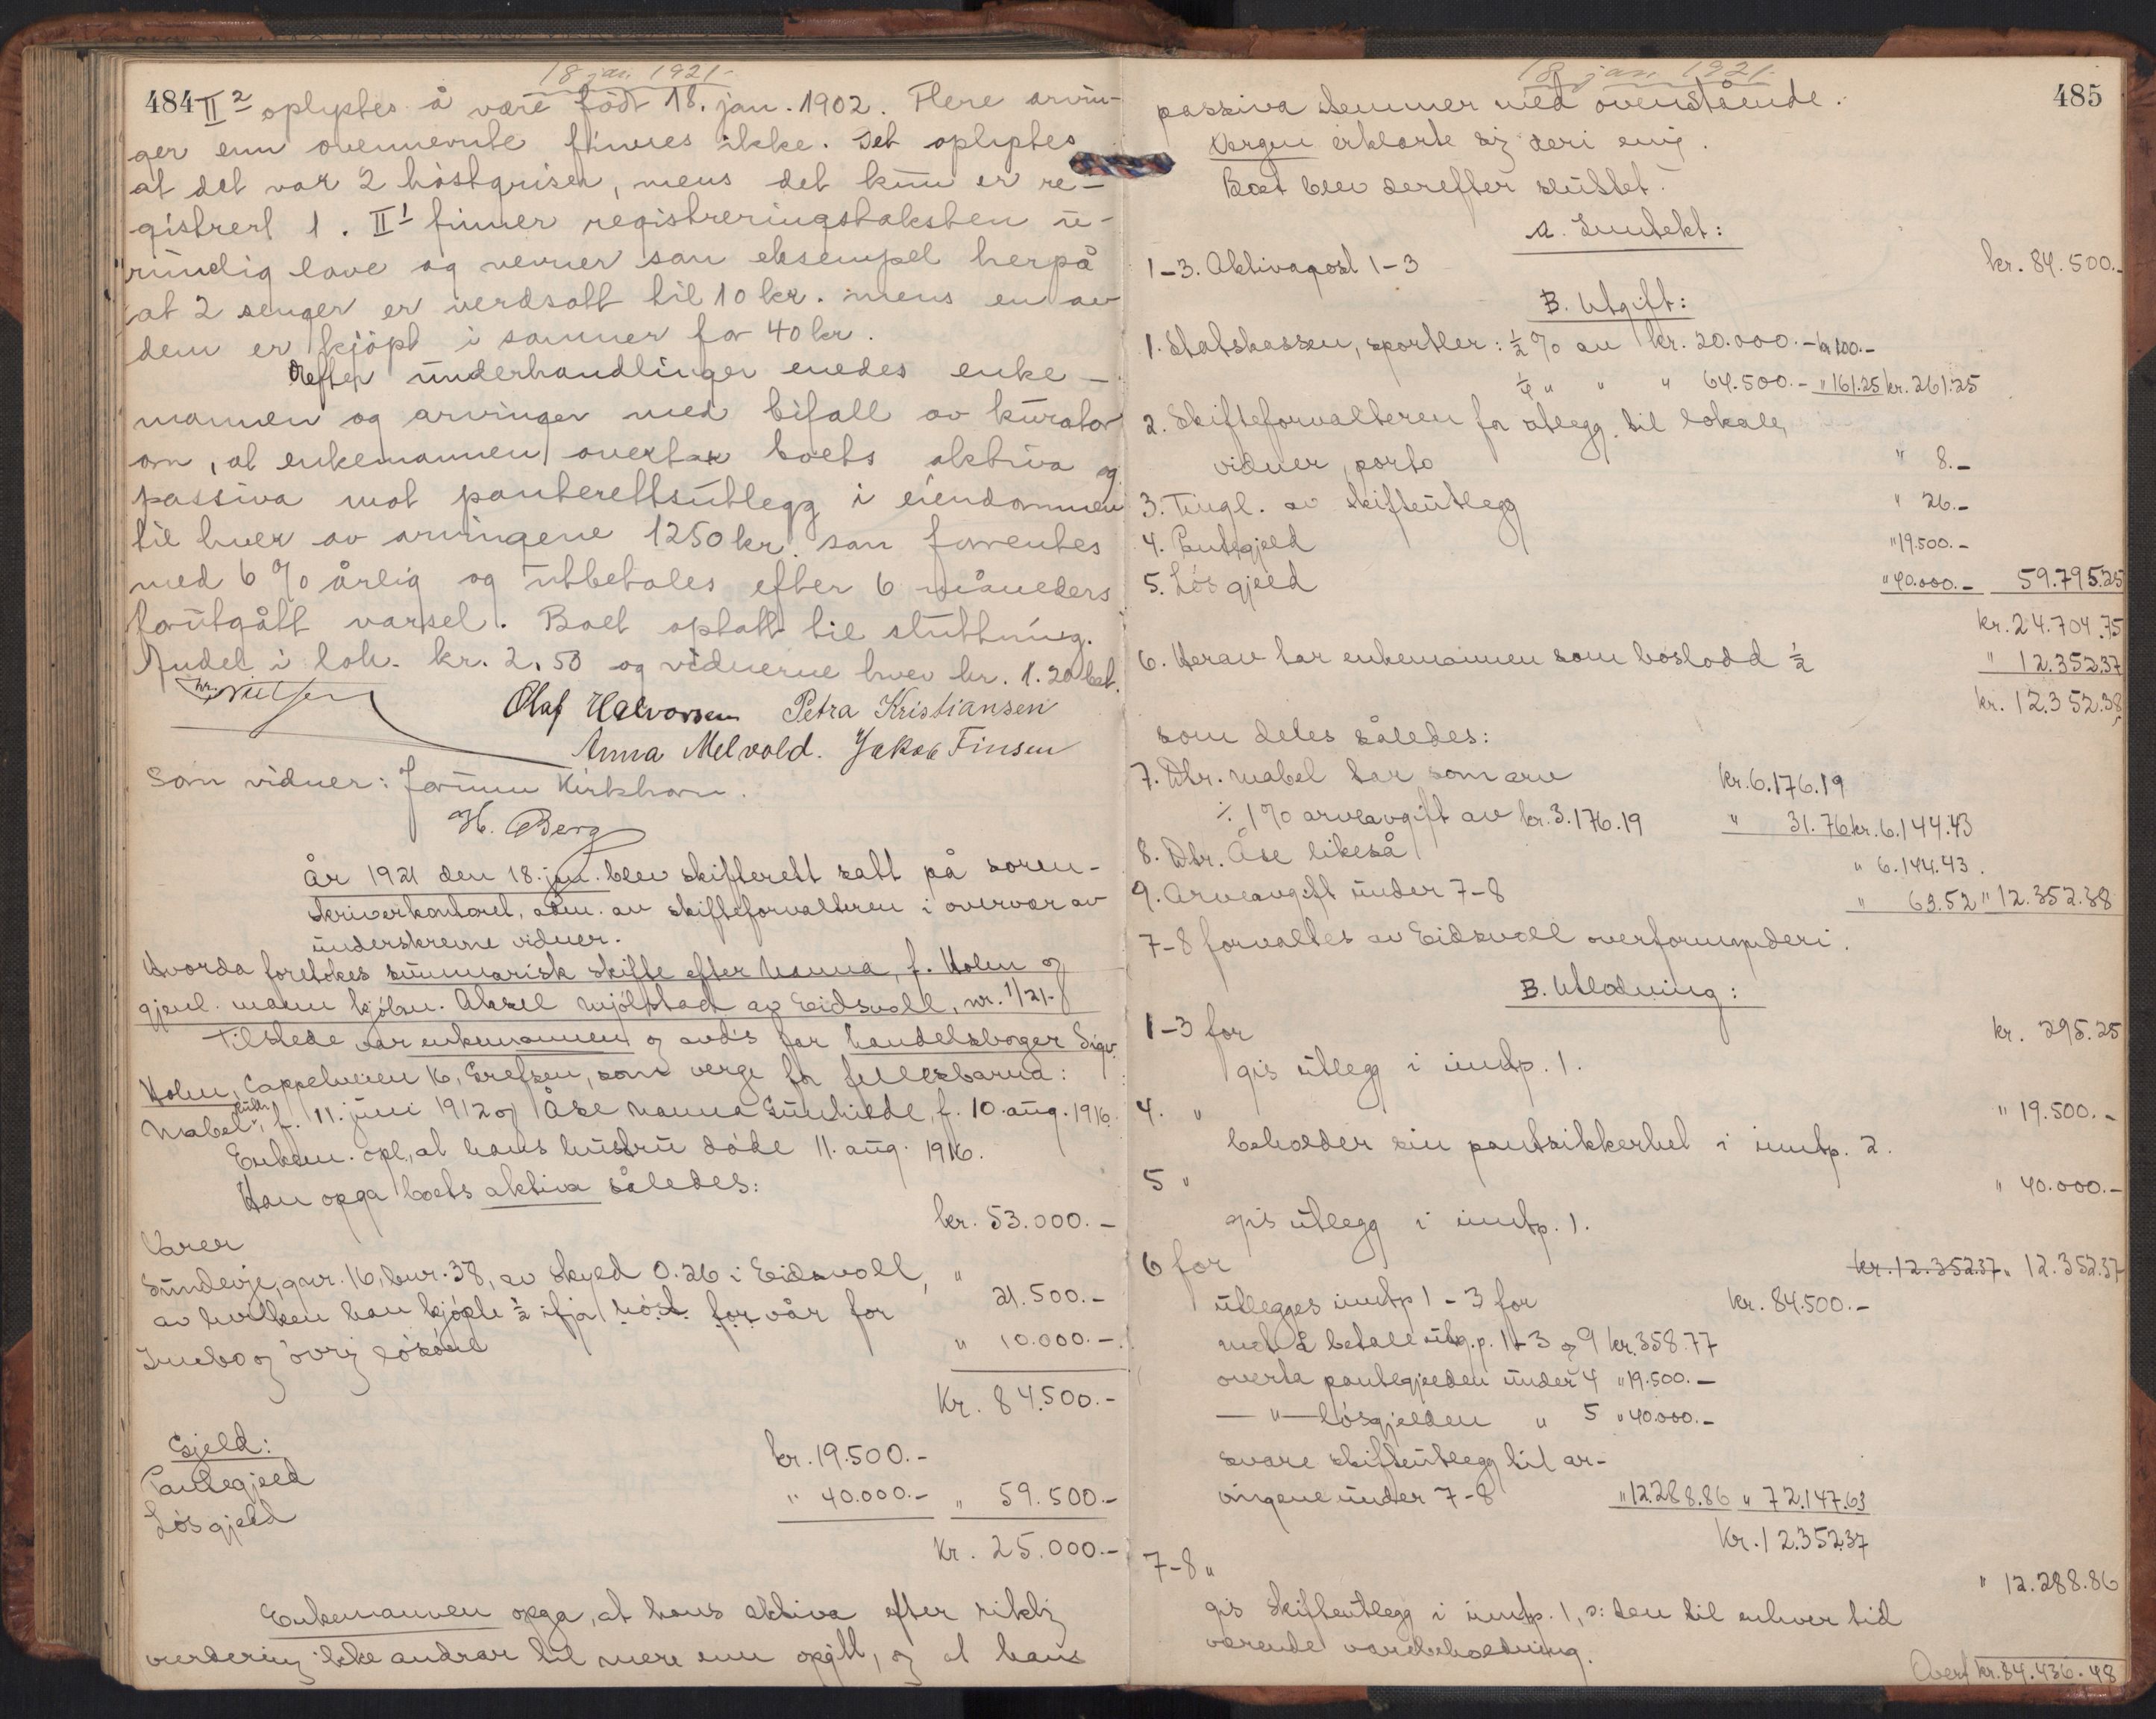 18 jan. 1921.
484 II² oplystes å være født 18. jan. 1902. Flere arvin-
ger enn ovennevnte finnes ikke. Det oplystes
at det var 2 høstgriser, mens det kun er re-
gistrert 1. II¹ finner registreringstaksten u-
rimelig lave og nevner som eksempel herpå
at 2 senger er verdsatt til 10 kr. mens en av
dem er kjøpt i sommer for 40 kr.
Efter underhandlinger enedes enke-
mannen og arvinger med bifall av kurator
om, at enkemannen overtar boets aktiva og
passiva mot panterettsutlegg i eiendommen
til hver av arvingene 1250 kr. som forrentes
med 6 % årlig og utbetales efter 6 måneders
forutgått varsel. Boet optatt til sluttning.
Andel i lok. kr. 2.50 og vidnerne hver kr. 1.20 bet.
Nielsen
Olaf Halvorsen Petra Kristiansen
Anna Melvold. Jakob Finsen
Som vidner: Jørunn Kirkhorn.
H. Berg
År 1921 den 18. jan. blev skifterett satt på soren-
skriverkontoret, adm. av skifteforvalteren i overvær av
underskrevne vidner.
Hvorda foretokes summarisk skifte efter Nanna, f. Holm og
gjenl. mann kjøbm. Aksel Mjølstad av Eidsvoll, nr. 1/21.
Tilstede var enkemannen og avd's far handelsborger Sigv.
Holm, Cappelveien 16, Grefsen, som verge for fellesbarna:
Mabel Ruth, f. 11. juni 1912 og Åse Nanna Gunhilde, f. 10. aug. 1916.
Enkem. opl., at hans hustru døde 11. aug. 1916.
Han opga boets aktiva således:
Varer kr. 53.000.-
Sundevje, gnr. 16, bnr. 38, av skyld 0.26 i Eidsvoll,
av hvilken han kjøpte ½ ifjor høst for vår for " 21.500.-
Innbo og øvrig løsøre " 10.000.-
Kr. 84.500.-
Gjeld:
Pantegjeld kr. 19.500.-
Løsgjeld " 40.000.- " 59.500.-
Kr. 25.000.-
Enkemannen opga, at hans aktiva efter riktig
vurdering ikke andrar til mere enn opgitt, og at hans
18 jan. 1921.
485
passiva stemmer med ovenstående.
Vergen erklærte sig deri enig.
Boet blev derefter sluttet.
A. Inntekt:
1-3. Aktivapost 1-3 kr. 84.500.-
B. Utgift:
1. Statskassen, sportler: ½ % av kr. 20.000.- kr 100.-
¼ " " " 64.500.- " 161.25 kr. 261.25
2. Skifteforvalteren for utlegg til lokale,
vidner, porto " 8.-
3. Tingl. av skifteutlegg " 26.-
4. Pantegjeld " 19.500.-
5. Løsgjeld " 40.000.- 59.795.25
kr. 24.704.75
6. Herav tar enkemannen som boslodd ½ " 12.352.37
kr. 12.352.38,
som deles således:
7. Dtr. Mabel tar som arv kr. 6.176.19
÷ 1 % arveavgift av kr. 3.176.19 " 31.76 kr. 6.144.43
8. Dtr. Åse likeså " 6.144.43.
9. Arveavgift under 7-8 " 63.52 " 12.352.38
7-8 forvaltes av Eidsvoll overformynderi.
B. Utlodning:
1-3 for kr. 295.25
gis utlegg i inntp. 1.
4. " " 19.500.-
beholder sin pantsikkerhet i inntp. 2.
5 " " 40.000.-
gis utlegg i inntp. 1.
6 for kr. 12.352.37 " 12.352.37
utlegges inntp 1-3 for kr. 84.500.-
mot å betale utg.p. 1-3 og 9 kr. 358.77
overta pantegjelden under 4 " 19.500.-
— " — løsgjelden " 5 " 40.000.-
svare skifteutlegg til ar-
vingene under 7-8 " 12.288.86 " 72.147.63
Kr. 12.352.37
7-8 " " 12.288.86
gis skifteutlegg i inntp. 1, ɔ: den til enhver tid
værende varebeholdning.
Overf kr. 84.436.48